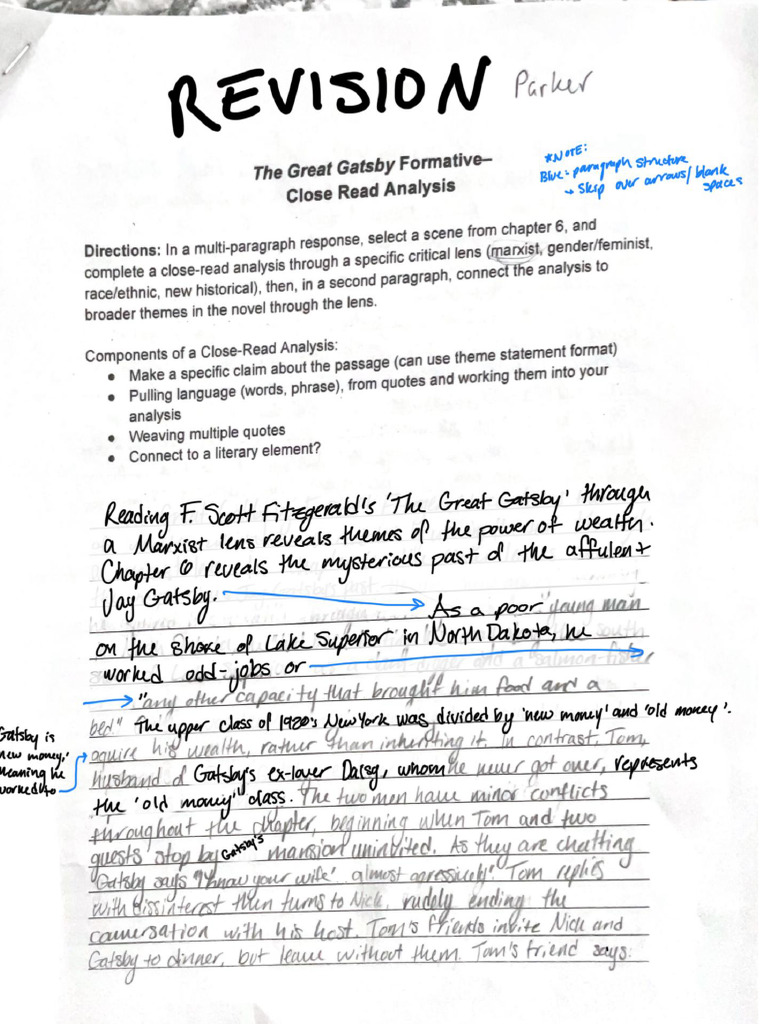 REVISION Parker
*NOTE:
Blue = paragraph structure
→ Skip over arrows/blank
spaces
The Great Gatsby Formative–
Close Read Analysis
Directions: In a multi-paragraph response, select a scene from chapter 6, and
complete a close-read analysis through a specific critical lens (marxist, gender/feminist,
race/ethnic, new historical), then, in a second paragraph, connect the analysis to
broader themes in the novel through the lens.
Components of a Close-Read Analysis:
● Make a specific claim about the passage (can use theme statement format)
● Pulling language (words, phrase), from quotes and working them into your
analysis
● Weaving multiple quotes
● Connect to a literary element?
Reading F. Scott Fitzgerald's 'The Great Gatsby' through
a Marxist lens reveals themes of the power of wealth.
Chapter 6 reveals the mysterious past of the affulent
Jay Gatsby.
As a poor "young man
on the shore of Lake Superior in North Dakota, he
worked odd-jobs or
"any other capacity that brought him food and a
bed" The upper class of 1920's New York was divided by 'new money' and 'old money'.
Gatsby is
new money,'
meaning he
worked to
aquire his wealth, rather than inheriting it. In contrast, Tom,
husband of Gatsby's ex-lover Daisy, whom he never got over, represents
the 'old money' class. The two men have minor conflicts
throughout the chapter, beginning when Tom and two
guests stop by Gatsby's mansion uninvited. As they are chatting
Gatsby says "I know your wife' almost agressively". Tom replies
with dissinterest then turns to Nick, rudely ending the
conversation with his host. Tom's friends invite Nick and
Gatsby to dinner, but leave without them. Tom's friend says: